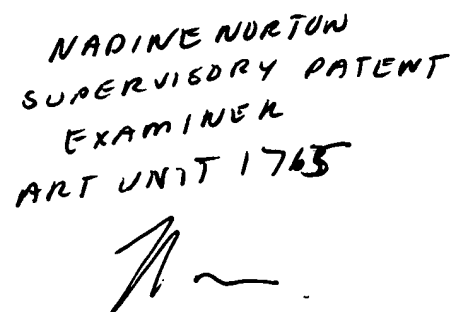 NADINE NORTON
SUPERVISORY PATENT
EXAMINER
ART UNIT 1765